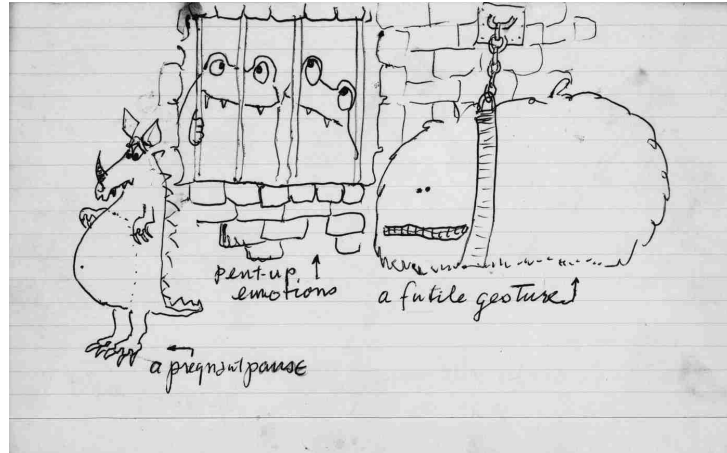 pent-up
emotions
a futile gesture
a pregnant pause